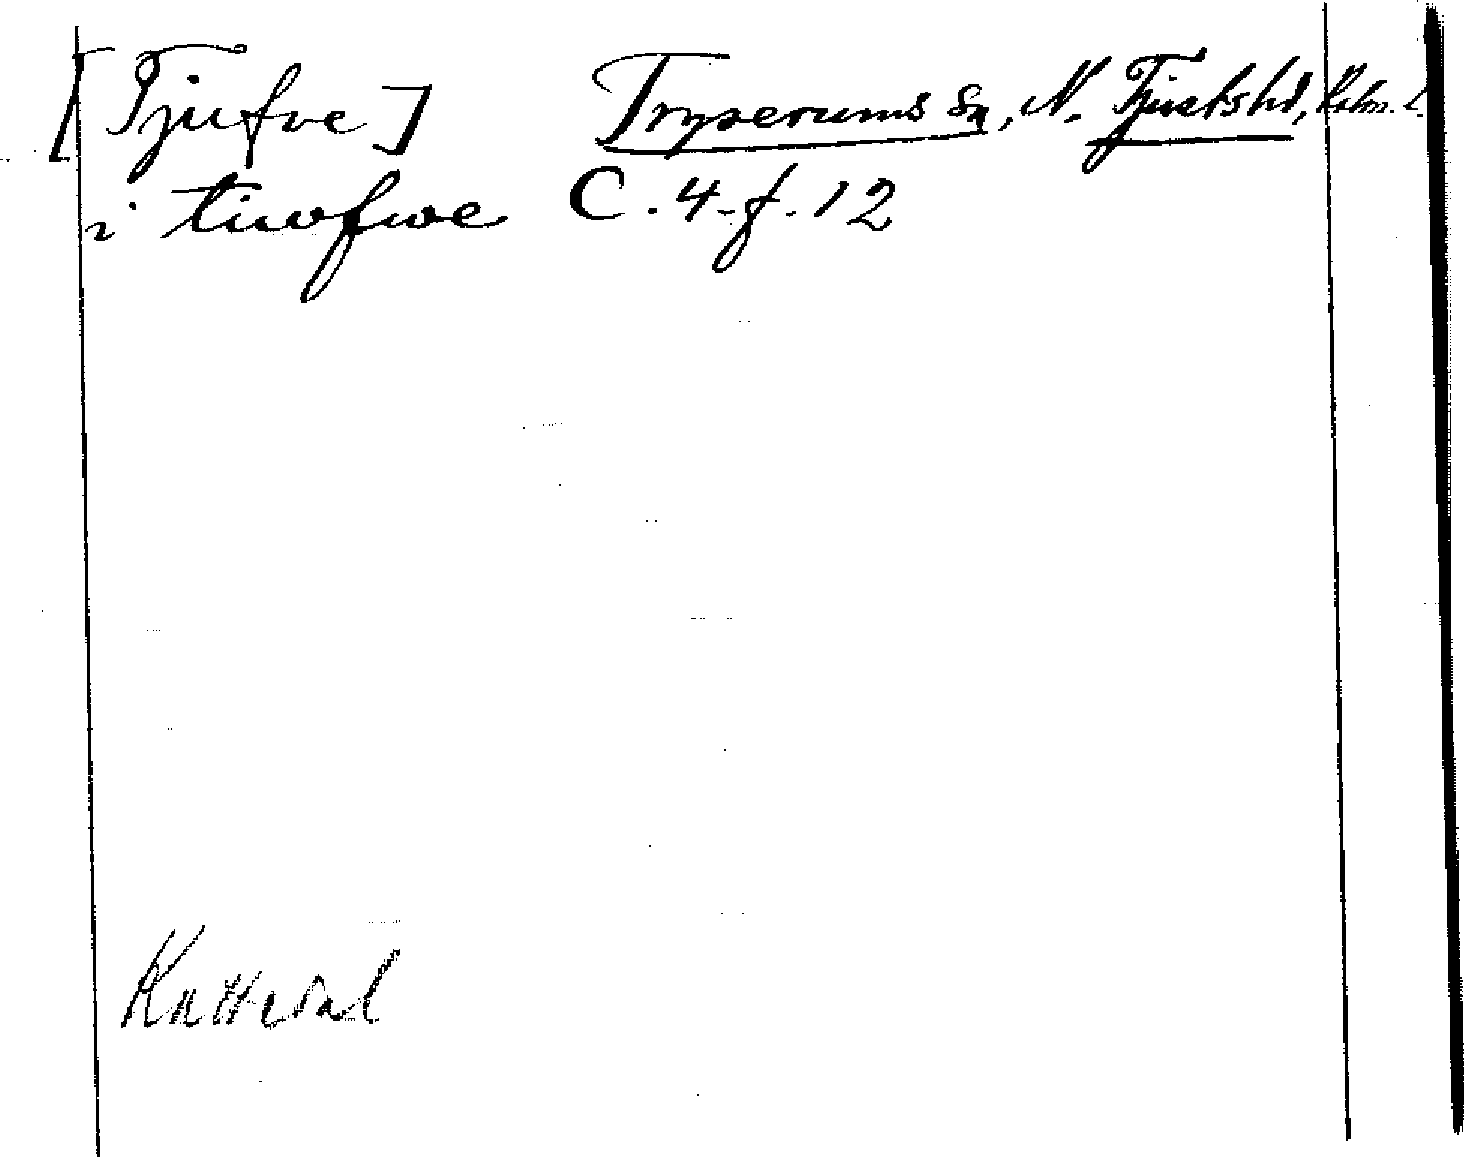 [Tjufve] Tryserums Sn, N. Tjustshd, Kalm. l.
i tiwfwe C. 4. f. 12
Kattedal